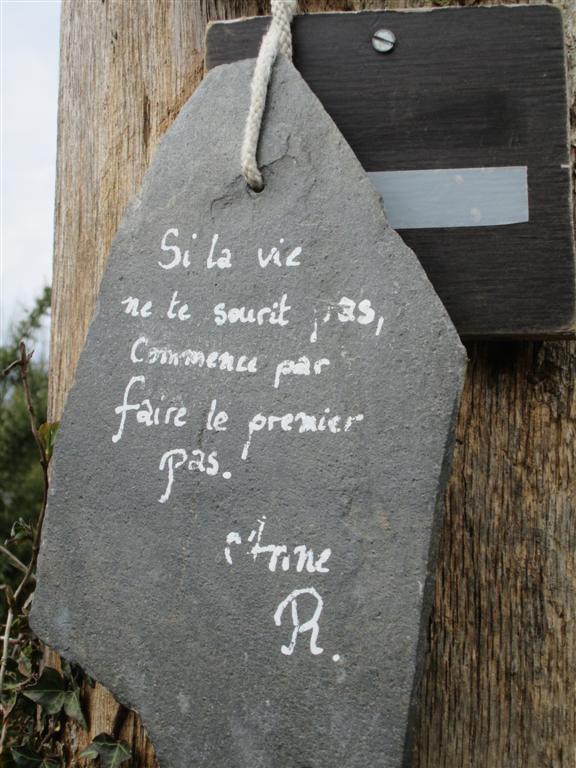 Si la vie
ne te sourit pas,
Commence par
faire le premier
pas.
Anne
R.